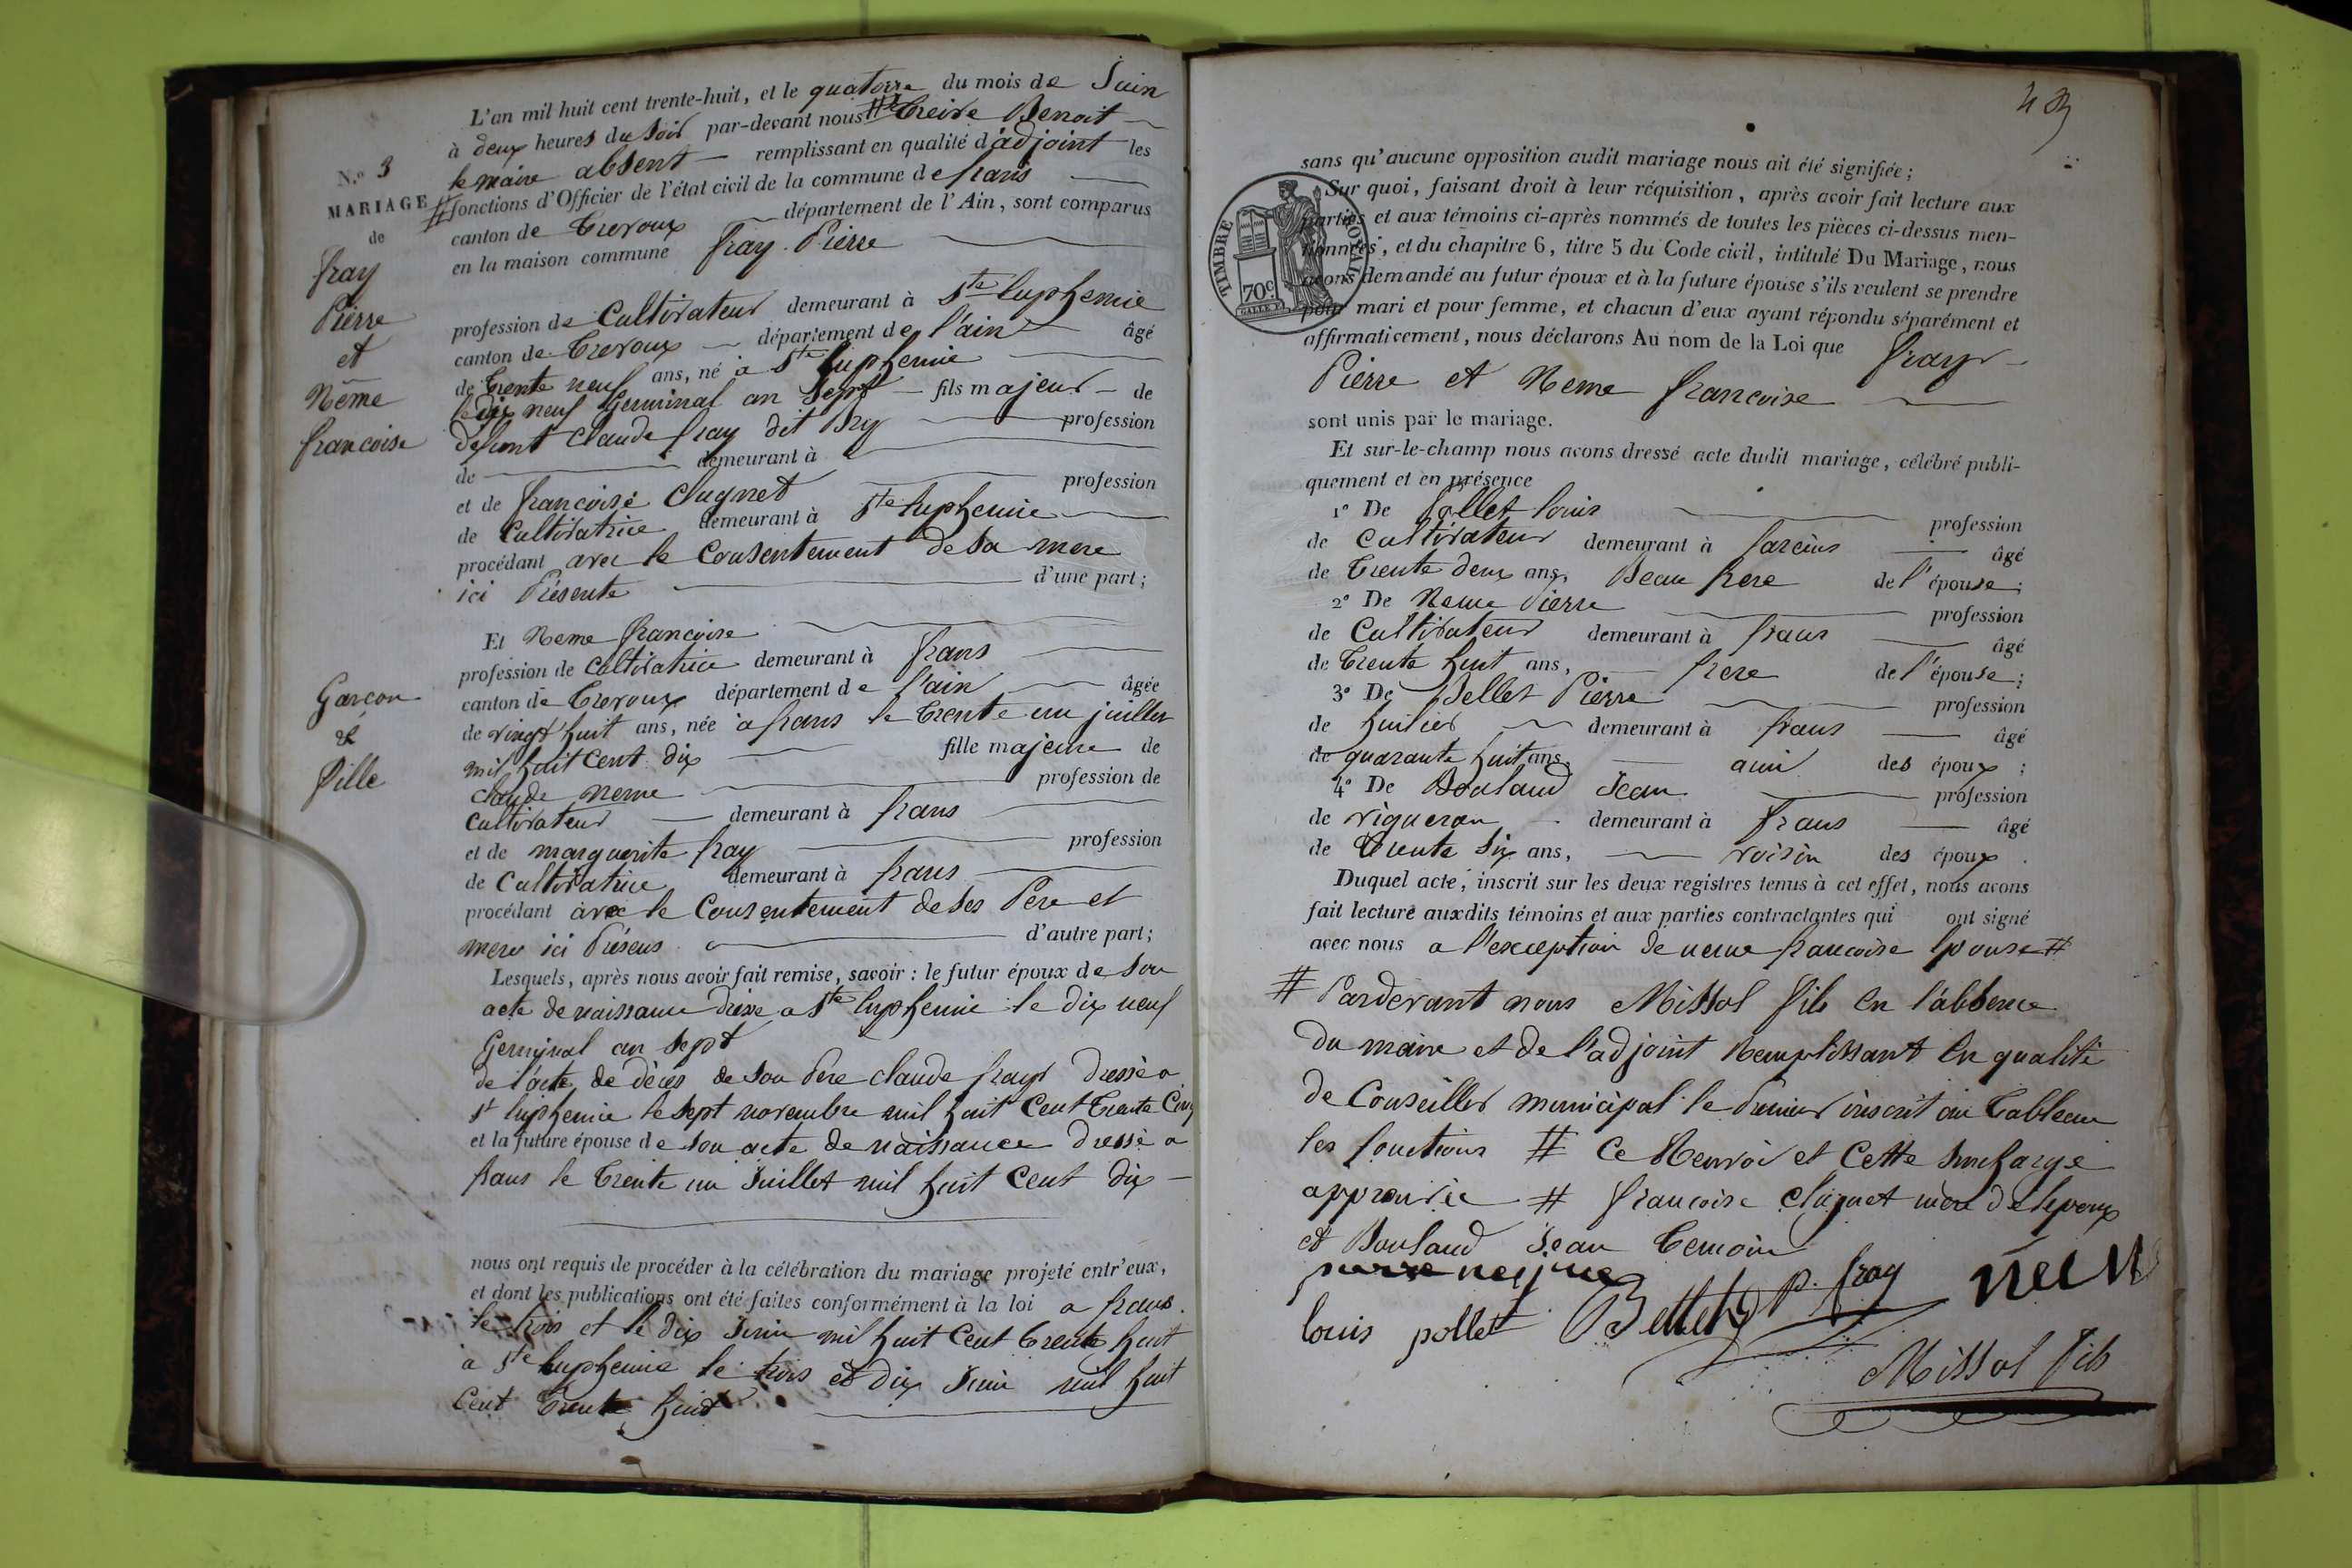 L'an mil huit cent trente-huit, et le quatorze du mois de Juin
à deux heures du Soir par-devant nous # Treive Benoit
le maire absent remplissant en qualité d'adjoint les
# fonctions d'Officier de l'état civil de la commune de frans
canton de Trevoux département de l'Ain, sont comparus
en la maison commune fray Pierre
profession de Cultivateur demeurant à Ste Euphemie
canton de Trevoux département de l'ain âgé
de Trente neuf ans, né à Ste Euphemie
le dix neuf Germinal an Sept fils majeur de
defunt Claude fray dit Bry profession
de demeurant à
et de francoise Clugnet profession
de Cultivatrice demeurant à Ste Euphemie
procédant avec le Consentement de sa mere
ici Présente d'une part;
N.º 3
MARIAGE
de
fray
Pierre
et
Nême
francoise
Et Neme francoise
profession de Cultivatrice demeurant à frans
canton de Trevoux département de l'ain âgée
de vingt huit ans, née à frans le Trente un juillet
mil huit Cent dix fille majeure de
claude neme profession de
Cultivateur demeurant à frans
et de marguerite fray profession
de Cultivatrice demeurant à frans
procédant avec le Consentement de ses Pere et
mere ici Présens d'autre part;
Garcon
&
fille
Lesquels, après nous avoir fait remise, savoir : le futur époux de Son
acte de naissance a Ste Euphemie le dix neuf
Germinal an Sept
de l'acte de décès de son Pere claude fray Dressé a
St Euphemie le sept novembre mil huit Cent Trente Cinq
et la future épouse de son acte de naissance Dressé a
frans le Trente un Juillet mil huit Cent dix
nous ont requis de procéder à la célébration du mariage projeté entr'eux,
et dont les publications ont été faites conformément à la loi a frans
le trois et le dix Juin mil huit Cent Trente huit
a Ste Euphemie le trois et dix Juin mil huit
Cent Trente huit
43
TIMBRE ROYAL
70c.
sans qu'aucune opposition audit mariage nous ait été signifiée;
Sur quoi, faisant droit à leur réquisition, après avoir fait lecture aux
parties et aux témoins ci-après nommés de toutes les pièces ci-dessus men-
tionnées, et du chapitre 6, titre 5 du Code civil, intitulé Du Mariage, nous
avons demandé au futur époux et à la future épouse s'ils veulent se prendre
pour mari et pour femme, et chacun d'eux ayant répondu séparément et
affirmativement, nous déclarons Au nom de la Loi que fray
Pierre et Neme francoise
sont unis par le mariage.
Et sur-le-champ nous avons dressé acte dudit mariage, célébré publi-
quement et en présence
1º De Pollet louis profession
de Cultivateur demeurant à fareins âgé
de Trente deux ans, Beau frere de l'épouse;
2º De Neme Pierre profession
de Cultivateur demeurant à frans âgé
de Trente huit ans, frere de l'épouse;
3º De Bellet Pierre profession
de huilier demeurant à frans âgé
de quarante huit ans, ami des époux;
4º De Bouland Jean profession
de vigneron demeurant à frans âgé
de Trente Six ans, voisin des époux.
Duquel acte, inscrit sur les deux registres tenus à cet effet, nous avons
fait lecture auxdits témoins et aux parties contractantes qui ont signé
avec nous a l'exception de neme francoise Epouse #
# Pardevant nous Missol fils En l'absence
du maire et de l'adjoint Remplissant En qualité
de Conseiller municipal le Premier inscrit au Tableau
les fonctions # Ce Renvoi et Cette Surcharge
approuvée # francoise clugnet mere de l'epoux
et Bouland Jean Temoin
louis pollet Bellet p. fray
Missol fils